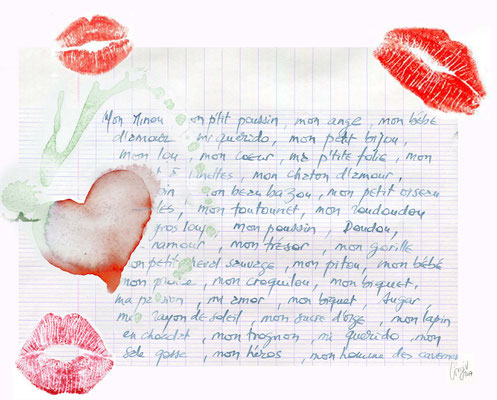 Mon Minou on ptit poussin, mon ange, mon bébé
d'amour mi querido, mon petit bijou,
mon lou, mon coeur, ma p'tite folie, mon
à lunettes, mon chaton d'amour,
on beau bazou, mon petit oiseau
mon toutounet, mon roudoudou
gros loup, mon poussin, Doudou,
namour, mon trésor, mon gorille
mon petit cheval sauvage, mon pitou, mon bébé
mon, mon croquilou, mon biquet,
ma passion, mi amor, mon biquet, sugar,
mon rayon de soleil, mon sucre d'orge, mon lapin
en chocolat, mon trognon, mi querido, mon
sale gosse, mon héros, mon homme des cavernes